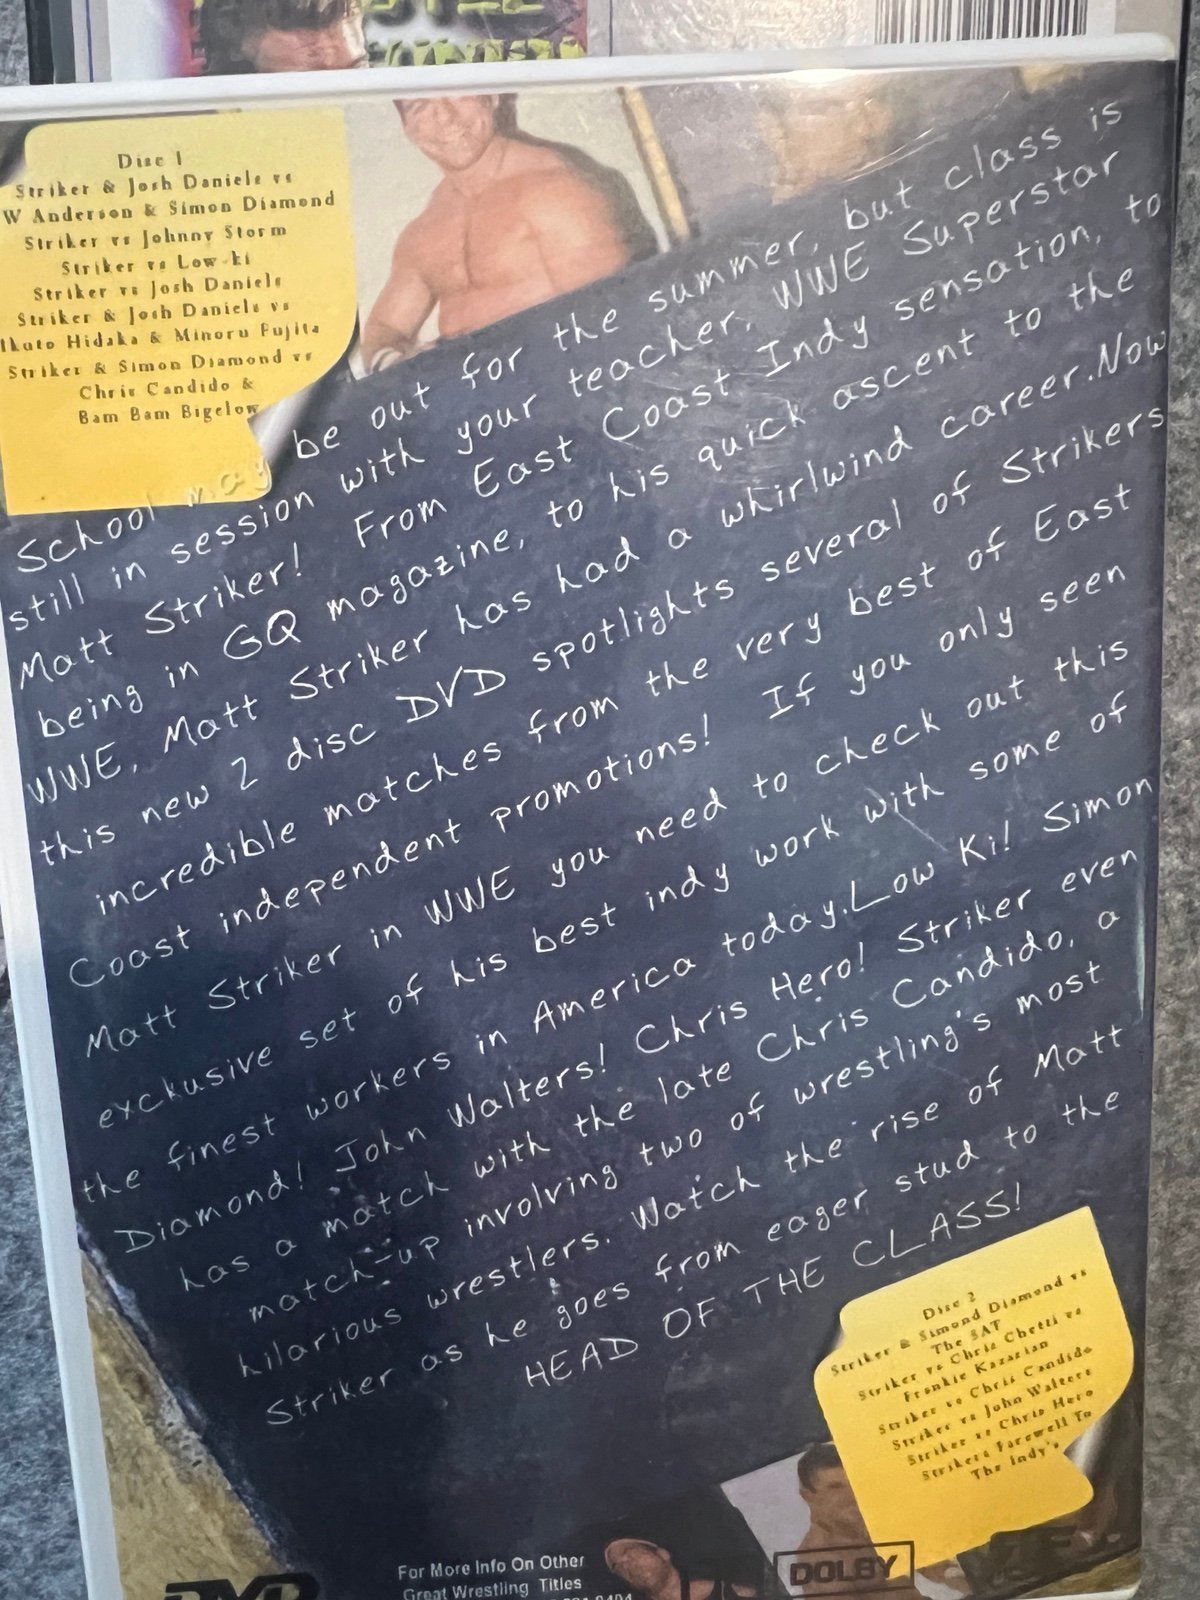 Disc 1
Striker & Josh Daniels vs
W Anderson & Simon Diamond
Striker vs Johnny Storm
Striker vs Low-ki
Striker vs Josh Daniels
Striker & Josh Daniels vs
Ikuto Hidaka & Minoru Fujita
Striker & Simon Diamond vs
Chris Candido &
Bam Bam Bigelow
School may be out for the summer, but class is
still in session with your teacher, WWE Superstar
Matt Striker! From East Coast Indy sensation, to
being in GQ magazine, to his quick ascent to the
WWE, Matt Striker has had a whirlwind career.Now
this new 2 disc DVD spotlights several of Strikers
incredible matches from the very best of East
Coast independent promotions! If you only seen
Matt Striker in WWE you need to check out this
exckusive set of his best indy work with some of
the finest workers in America today.Low Ki! Simon
Diamond! John Walters! Chris Hero! Striker even
has a match with the late Chris Candido, a
match-up involving two of wrestling's most
hilarious wrestlers. Watch the rise of Matt
Striker as he goes from eager stud to the
HEAD OF THE CLASS!
Disc 2
Striker & Simond Diamond vs
The SAT
Striker vs Chris Chetti vs
Frankie Kazarian
Striker vs Chris Candido
Striker vs John Walters
Striker vs Chris Hero
Strikers Farewell To
The Indy's
For More Info On Other
Great Wrestling Titles
DVD
DOLBY